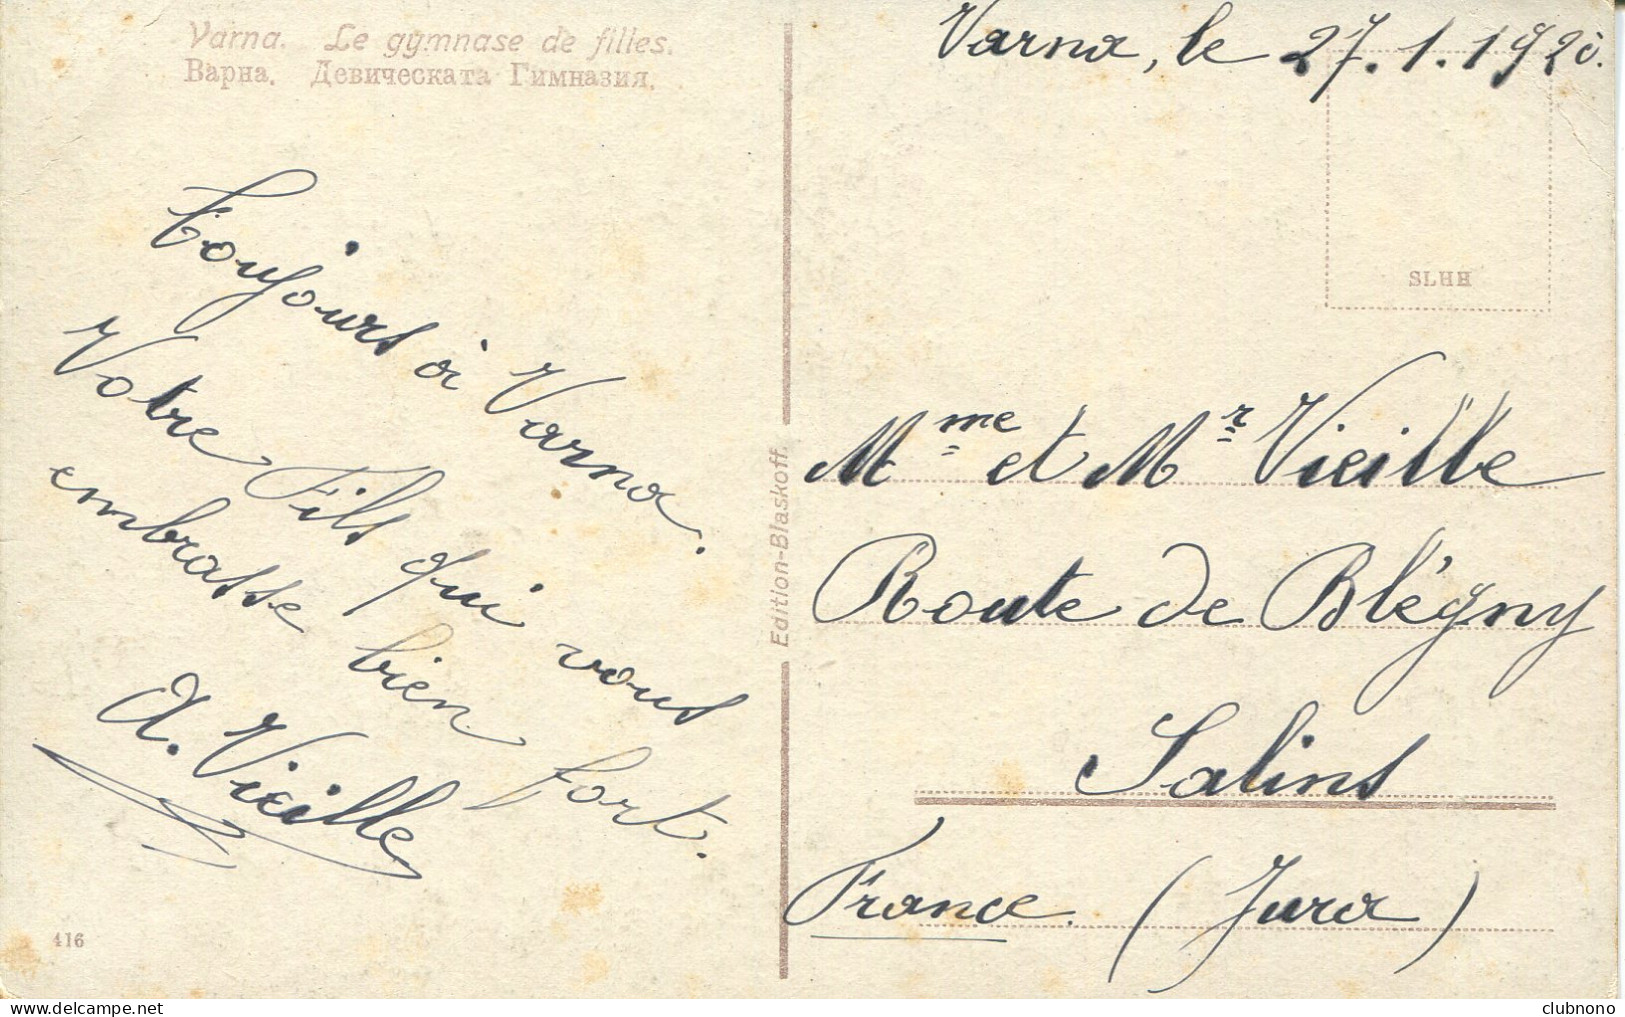 Varna. Le gymnase de filles.
Варна. Девическата Гимназия.
Varna, le 27.1.1920.
SLHH
Toujours à Varna.
Votre Fils qui vous
embrasse bien fort.
A. Vieille
416
Edition-Blaskoff.
Mme et Mr Vieille
Route de Blégny
Salins
France (Jura)
clubnono